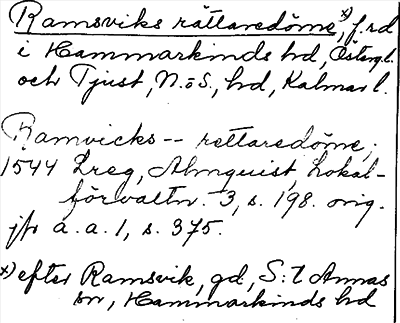 Ramsviks rättaredöme,x) f.rd
i Hammarkinds hd, Östergl.
och Tjust, N.o S., hd, Kalmar l.
Ramvicks -- rettaredöme,
1544 Lreg, Almquist, Lokal-
förvaltn. 3, s. 198. orig.
jfr a. a. 1, s. 375.
x) efter Ramsvik, gd, S:t Annas
sn, Hammarkinds hd